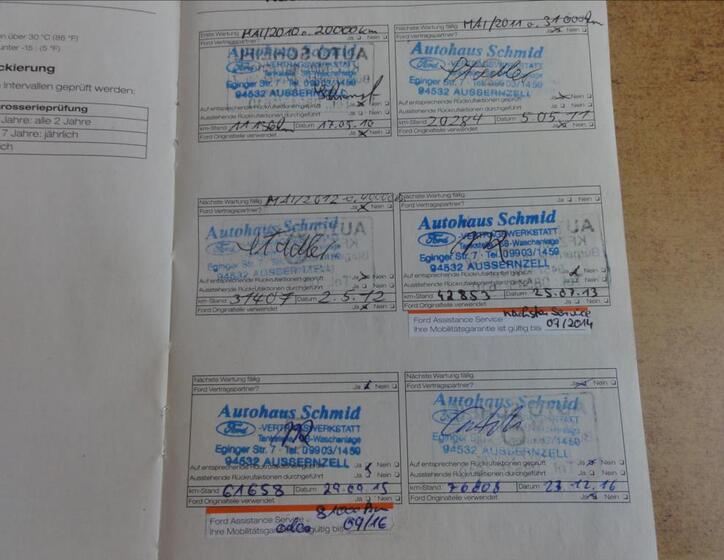 en über 30 °C (86 °F)
unter -15 : (5 °F)
ckierung
Intervallen geprüft werden:
rosserieprüfung
Jahre: alle 2 Jahre
7 Jahre: jährlich
ch
Erste Wartung MAI/2010 o. 20000km
Ford Vertragspartner? Ja Nein
Autohaus Schmid
Ford -VERTRAGSWERKSTATT
Eginger Str. 7 · Tel. 09903/1459
94532 AUSSERNZELL
Auf entsprechende Rückrufaktionen geprüft Ja Nein
Ausstehende Rückrufaktionen durchgeführt Ja Nein
km-Stand Datum 17.05.10
Ford Originalteile verwendet Ja Nein
Nächste Wartung fällig MAI/2011 o. 31000km
Ford Vertragspartner? Ja Nein
Autohaus Schmid
Ford -VERTRAGSWERKSTATT
Tankstelle · SB-Waschanlage
Eginger Str. 7 · Tel. 09903/1459
94532 AUSSERNZELL
Auf entsprechende Rückrufaktionen geprüft Ja Nein
Ausstehende Rückrufaktionen durchgeführt Ja Nein
km-Stand 20284 Datum 5.05.11
Ford Originalteile verwendet Ja Nein
Nächste Wartung fällig MAI/2012 o. 40000km
Ford Vertragspartner? Ja Nein
Autohaus Schmid
Ford -VERTRAGSWERKSTATT
Tankstelle · SB-Waschanlage
Eginger Str. 7 · Tel. 09903/1459
94532 AUSSERNZELL
Auf entsprechende Rückrufaktionen geprüft Ja Nein
Ausstehende Rückrufaktionen durchgeführt Ja Nein
km-Stand 31407 Datum 2.5.12
Ford Originalteile verwendet Ja Nein
Nächste Wartung fällig
Ford Vertragspartner? Ja Nein
Autohaus Schmid
Ford -VERTRAGSWERKSTATT
Tankstelle · SB-Waschanlage
Eginger Str. 7 · Tel. 09903/1459
94532 AUSSERNZELL
Auf entsprechende Rückrufaktionen geprüft Ja Nein
Ausstehende Rückrufaktionen durchgeführt Ja Nein
km-Stand 42853 Datum 25.07.13
Ford Originalteile verwendet Ja Nein
nächster Service
Ford Assistance Service
Ihre Mobilitätsgarantie ist gültig bis 07/2014
Nächste Wartung fällig
Ford Vertragspartner? Ja Nein
Autohaus Schmid
Ford -VERTRAGSWERKSTATT
Tankstelle · SB-Waschanlage
Eginger Str. 7 · Tel. 09903/1459
94532 AUSSERNZELL
Auf entsprechende Rückrufaktionen geprüft Ja Nein
Ausstehende Rückrufaktionen durchgeführt Ja Nein
km-Stand 61658 Datum 29.09.15
Ford Originalteile verwendet Ja Nein
81000 km
Ford Assistance Service
Ihre Mobilitätsgarantie ist gültig bis oder 09/16
Nächste Wartung fällig
Ford Vertragspartner? Ja Nein
Autohaus Schmid
Ford -VERTRAGSWERKSTATT
Tankstelle · SB-Waschanlage
Eginger Str. 7 · Tel. 09903/1459
94532 AUSSERNZELL
Auf entsprechende Rückrufaktionen geprüft Ja Nein
Ausstehende Rückrufaktionen durchgeführt Ja Nein
km-Stand Datum 23.12.16
Ford Originalteile verwendet Ja Nein